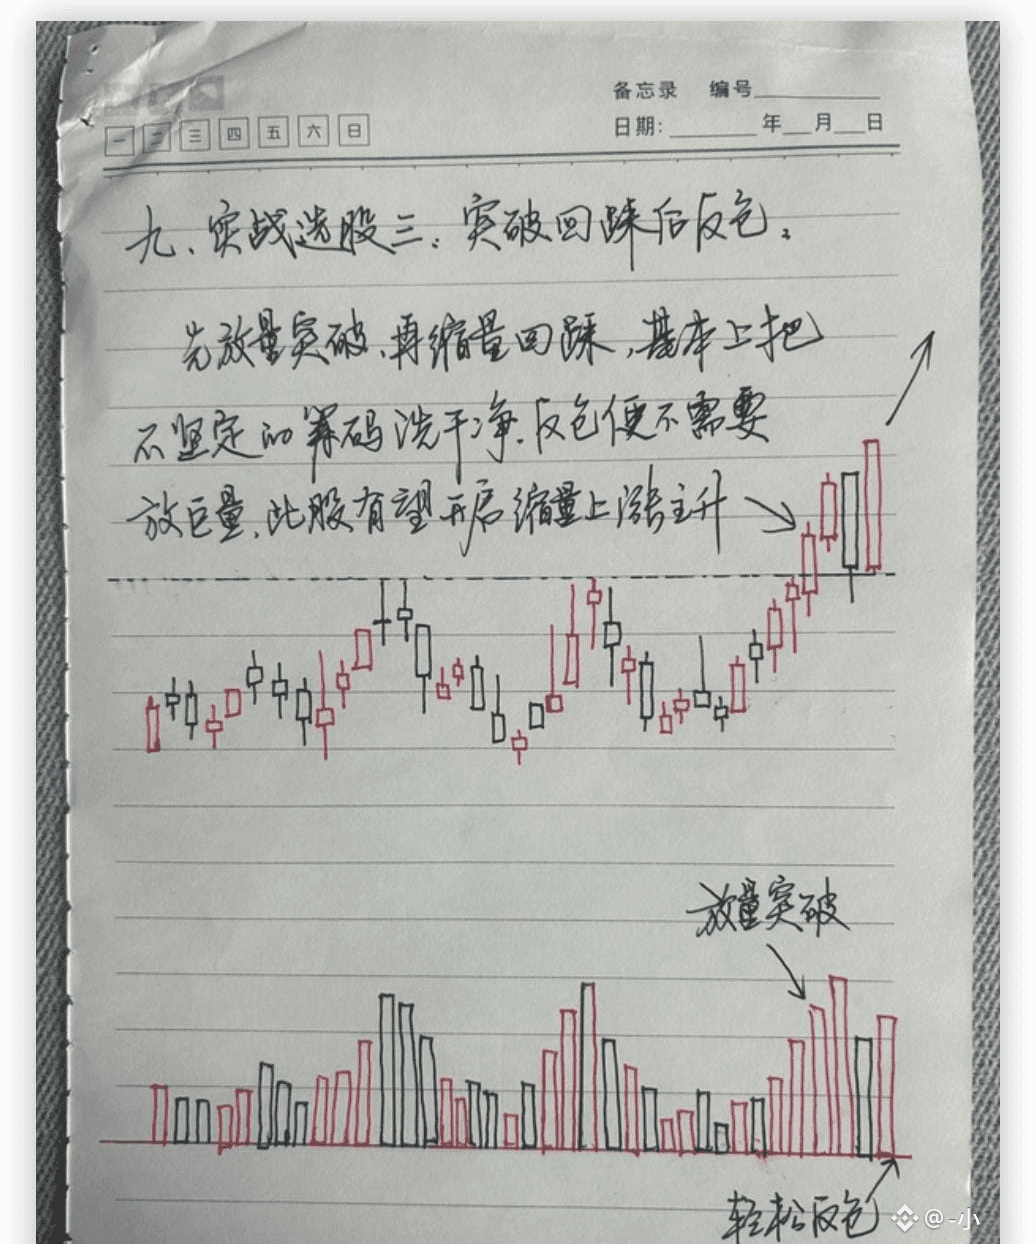 备忘录 编号
一 二 三 四 五 六 日
日期: 年 月 日
九、实战选股三:突破回踩后反包。
先放量突破,再缩量回踩,基本上把
不坚定的筹码洗干净,反包便不需要
放巨量,此股有望开启缩量上涨主升
放量突破
轻松反包
@-小